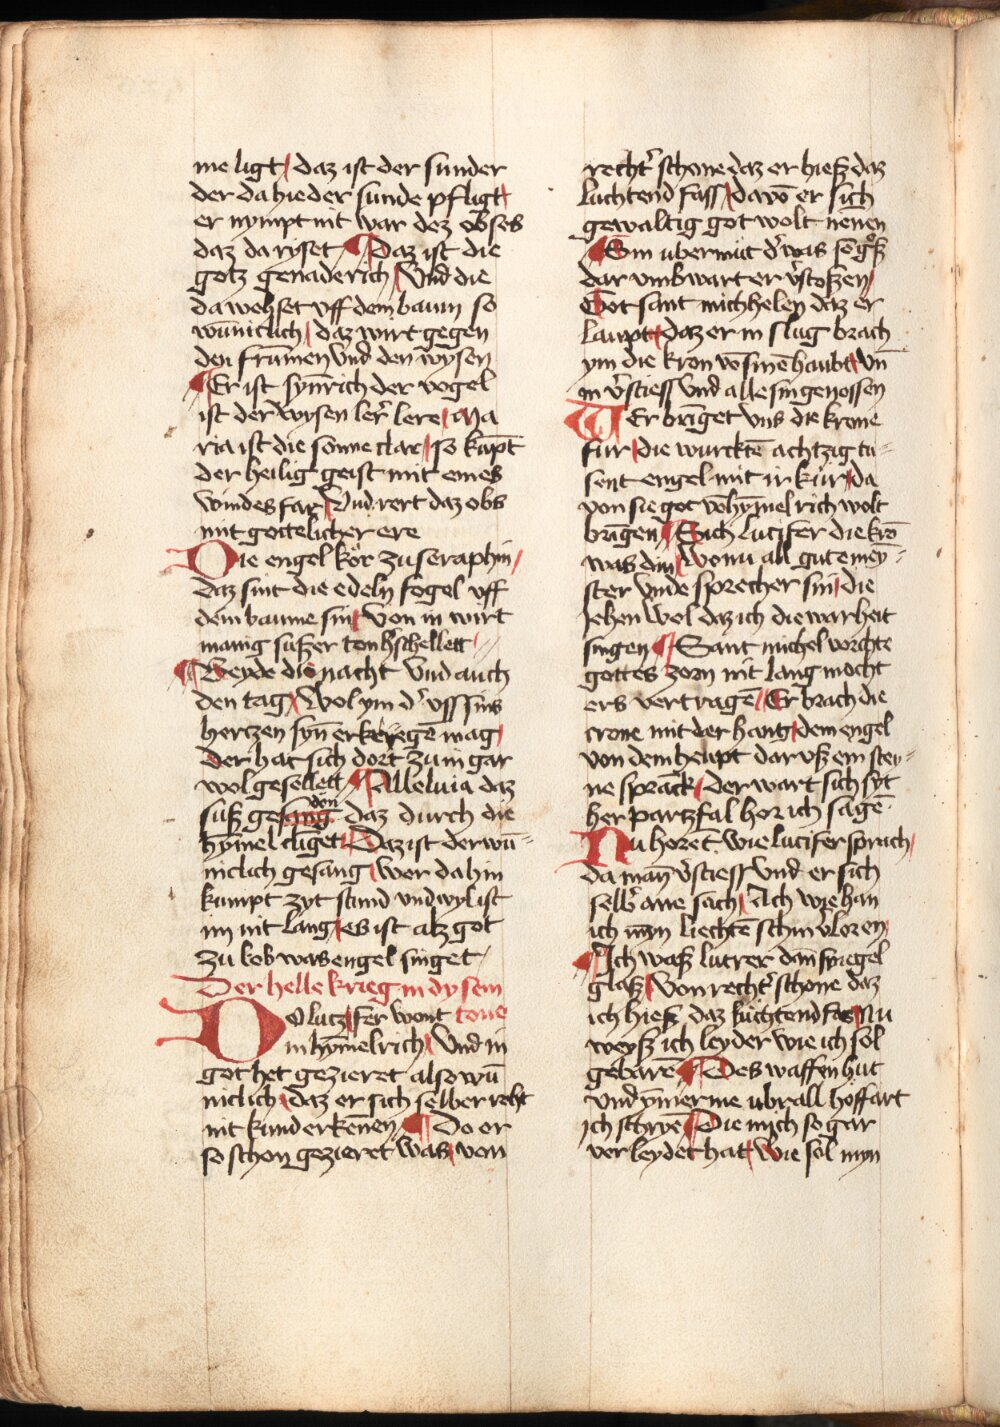 me ligt / daz ist der sunder
der da hie der sunde pfligt
er nympt nit war dez obses
daz da ryset ¶ Daz ist die
gotz genaderich / Vnd die
da wehset vff dem baum so
wuniclich / daz wirt gegen
den framen vnd den wysen
¶ Er ist synrich der vogel
ist der wysen ler lere / Ma
ria ist die sonne clar / so kūpt
der heilig geist mit eines
windes far / Vnd rert daz obs
mit gottelicher ere
Die engel kör zu seraphin /
daz sint die edeln fogel vff
dem baume sin / von in wirt
manig sußer ton hͬschellett /
¶ Beyde die nacht vnd auch
den tag / Wol ym dͬ vss sins
hertzen syn̄ erkriegē mag /
Der hat sich dort zu im gar
wol gesellett ¶ Alleluia daz
suß gesang dön daz durch die
hȳmel clīget / Daz ist der wū=
niclich gesang / wer da hin
kumpt zyt stund vnd wyl ist
im nit lang / es ist alz got
zu lob was engel singet /
Der helle krieg in dysem
Do lutzifer wont tone
in hȳmelrich / Vnd in
got het gezieret also wū
niclich / daz er sich selber reht
nit kund erkēnen ¶ Do er
so schon gezieret was / von
rechtͬ schone daz er hieß daz
luchtend fass / davō er sich
gewaltig got wolt nēnen
¶ Sin ubermüt dͬ was so gͦß
dar vmb wart er vͬstoßen /
Got sant michhelen daz er
laupt / daz er in slug brach
ym die kron vō sinē haubt / vn̄
in vͬstiess vnd alle sin genossen
Wer briget vns die krone
für / die wurcktē achtzig tu=
sent engel mit ir kür / da
von sie got vō hȳmelrich wolt
brīgen ¶ Sich lucifer die krō
was din / Wo nu all gute mey=
ster vnde sprecher sin / die
jehen wol daz ich die warheit
singen ¶ Sant michel vorchte
gottes zorn nit lang mocht
ers vertragē / Er brach die
crone mit der hant / dem engel
von dem heupt dar vß ein stey=
ne sprāck / der wart sich syt
her partzfal hor ich sagē
Nu horēt wie lucifer sprach /
da man vͬstiess vnd er sich
selbͬ ane sach / Ach wie han
ich myn liechtē schin vͬloren /
¶ Ich waß lutrer dan̄ spiegel
glaß / Von rechtͬ schone daz
ich hieß daz lüchtend fas / Nu
weyß ich leyder wie ich sol
gebarē ¶ Des waffen hüt
vnd ȳmer me ubrall hoffart
ich schryē / Die mich so gar
verleydet hat / Wie sol myn